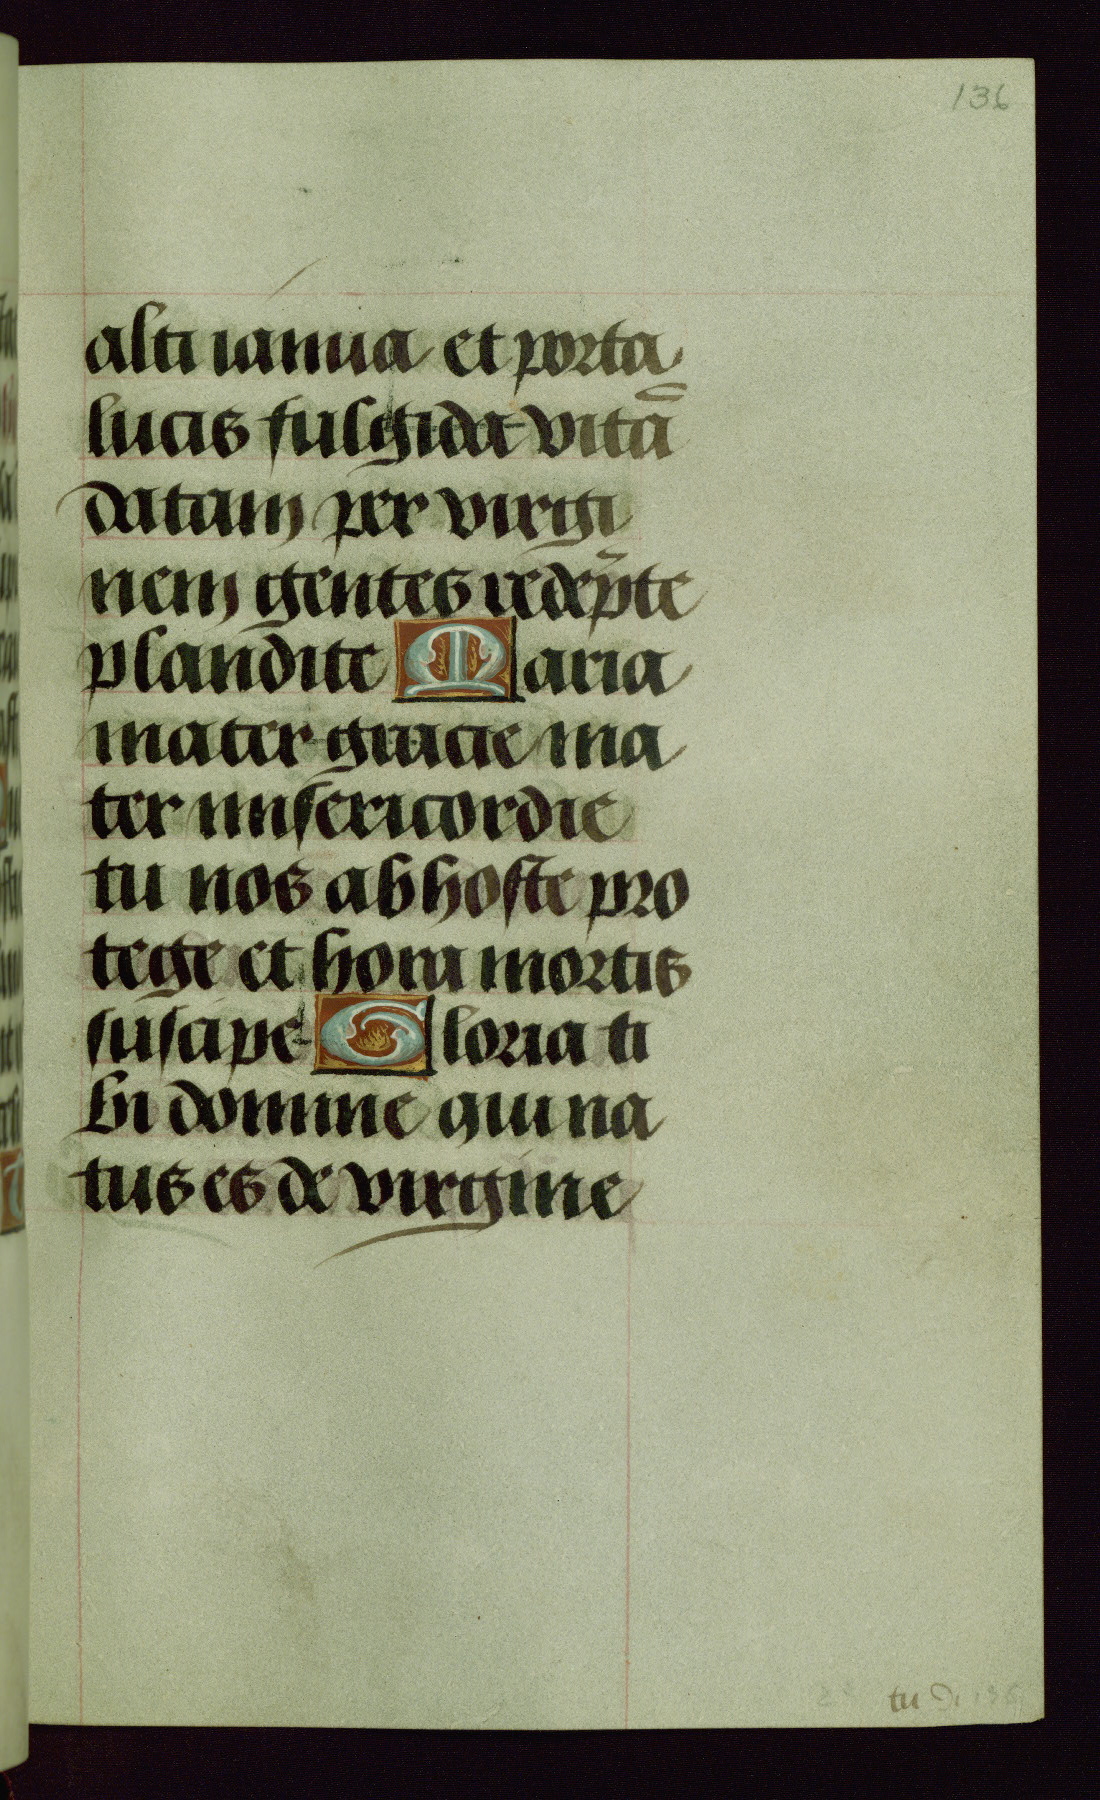 136
alti ianua et porta
lucis fulgida vitā
datam per virgi
nem gentes redep̄te
plandite Maria
mater gracie ma
ter misericordie
tu nos ab hoste pro
tege et hora mortis
suscipe Gloria ti
bi domine qui na
tus es de virgine